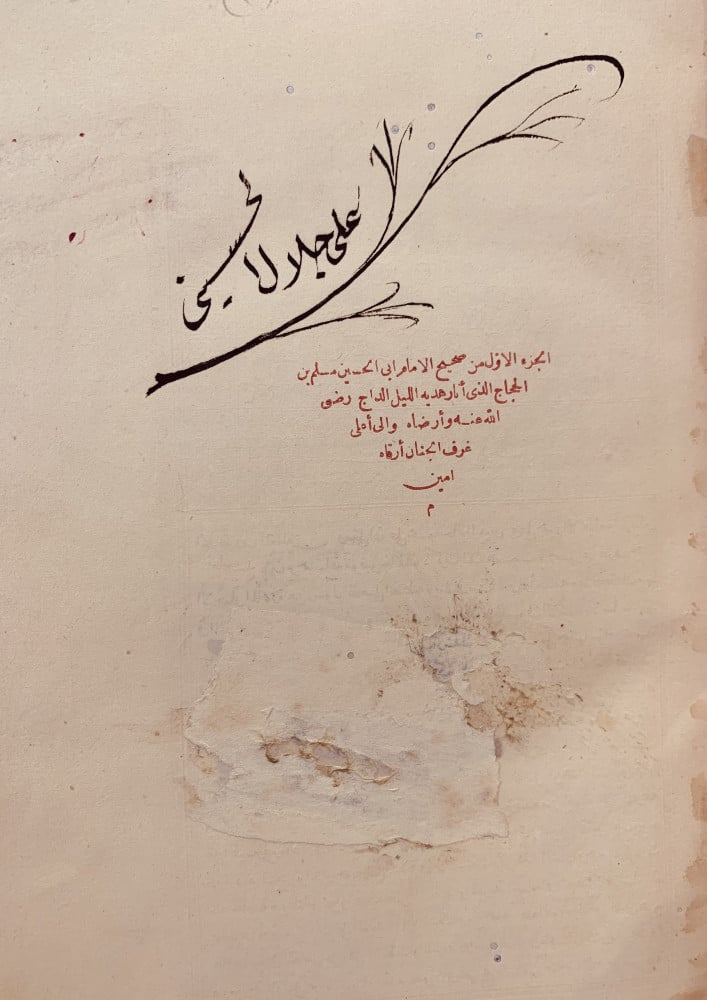 علي جلال الحسيني
الجزء الاول من صحيح الامام ابى الحسين مسلم بن
الحجاج الذى أنار هديه الليل الداج رضى
الله عنه وأرضاه والى أعلى
غرف الجنان أرقاه
امين
م